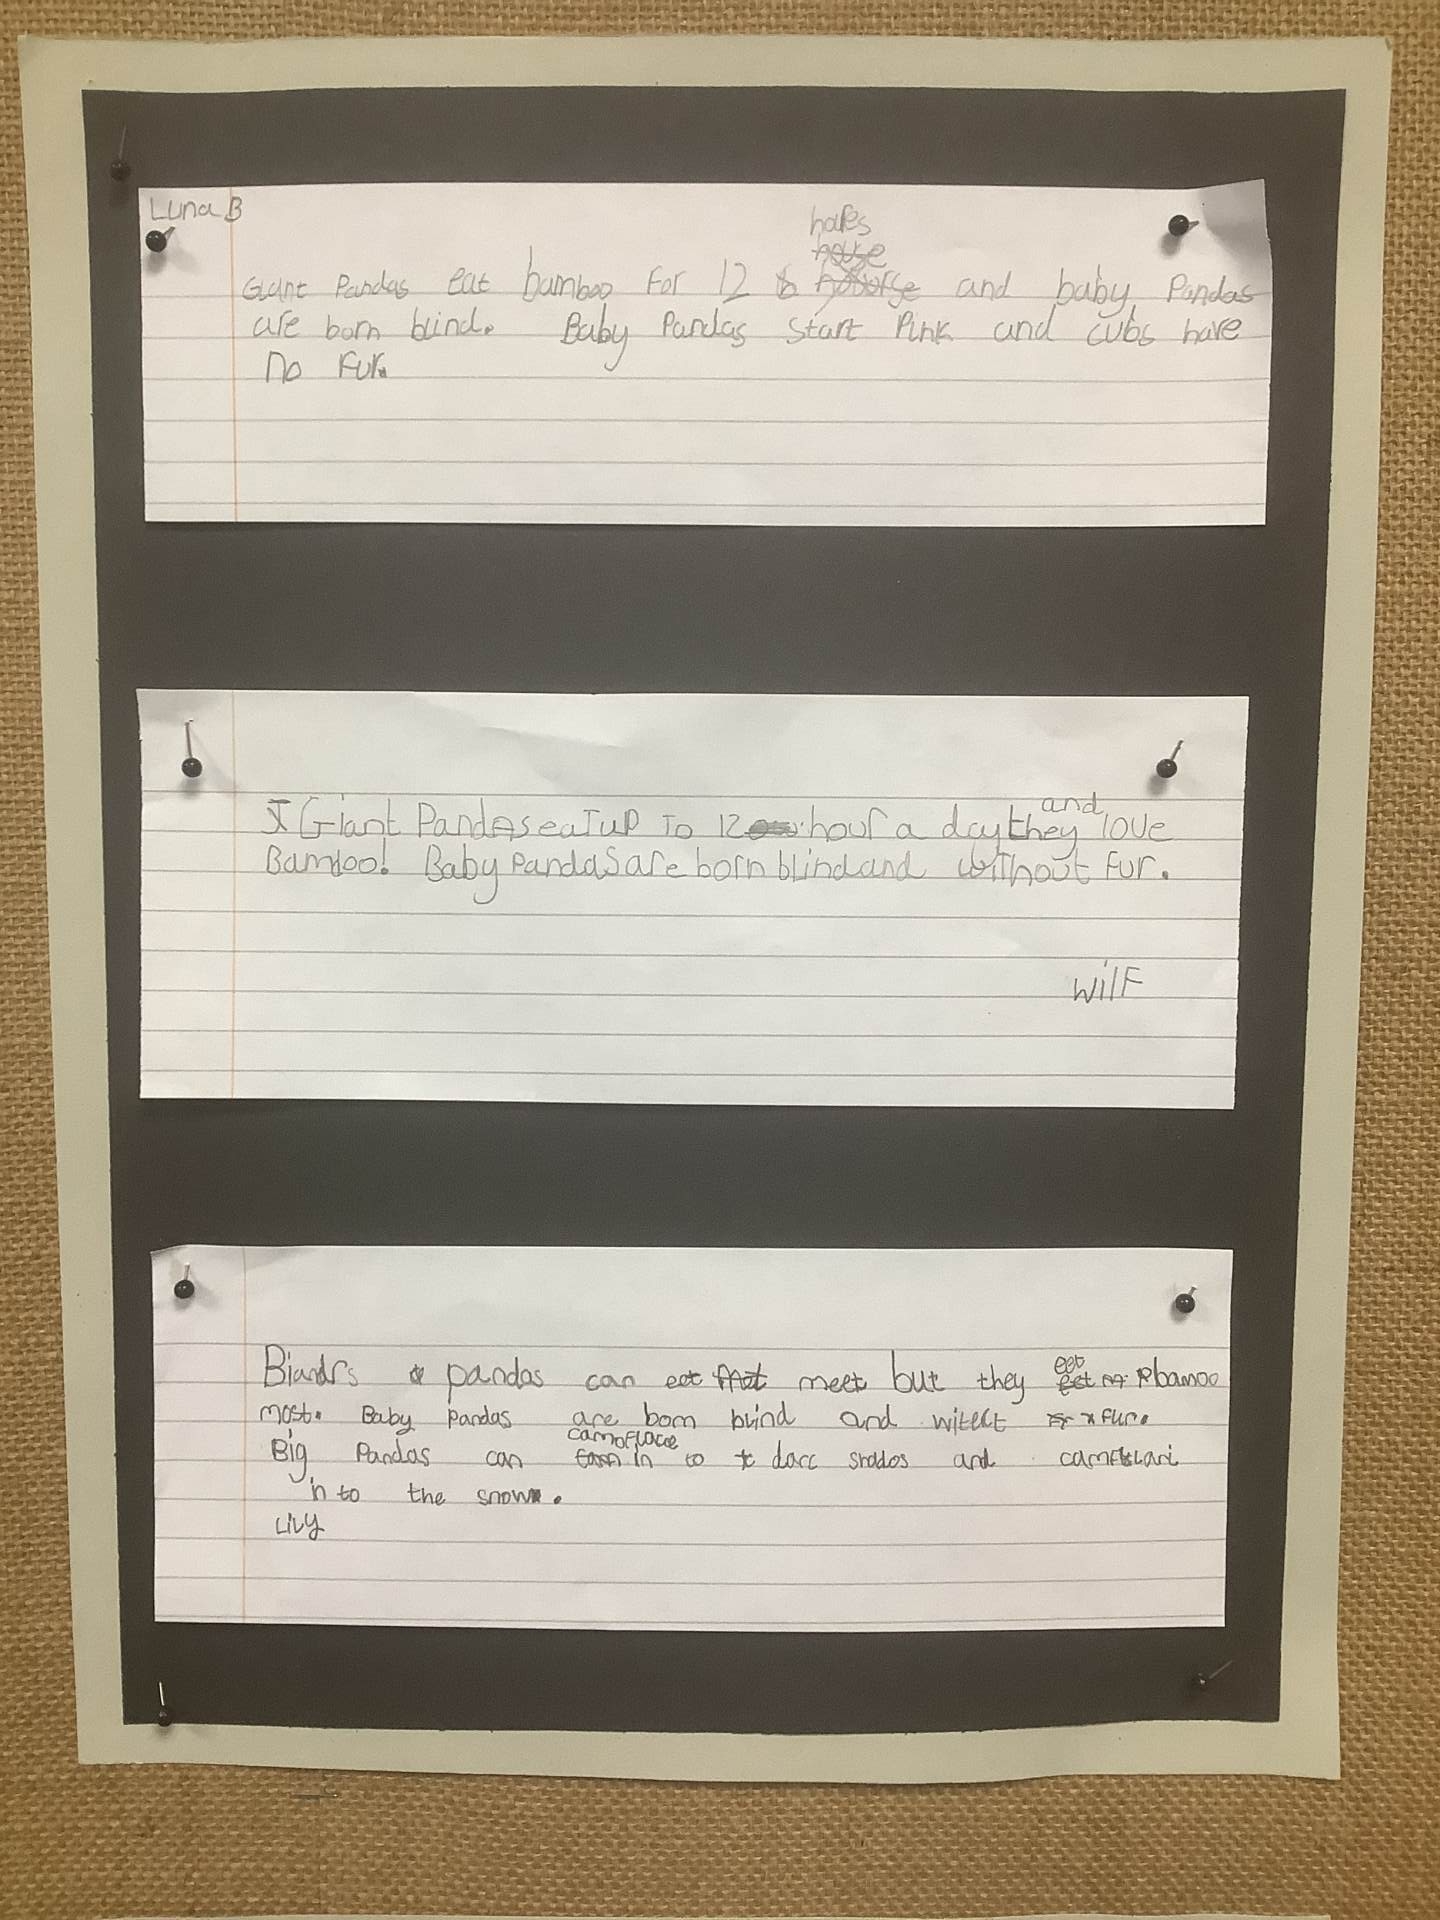 Luna B
hores
house
Giant Pandas eat bamboo For 12 and baby Pandas
are born blind. Baby Pandas Start Pink and cubs have
no Fur.
Giant Pandas eat up To 12 hour a day they and love
Bamboo! Baby pandas are born blind and without Fur.
wilF
Biandrs pandas can eet meet but they eet bamoo
most. Baby pandas are born blind and witect fur.
Big Pandas can camoflace in to darc shados and
in to the snow.
Lily